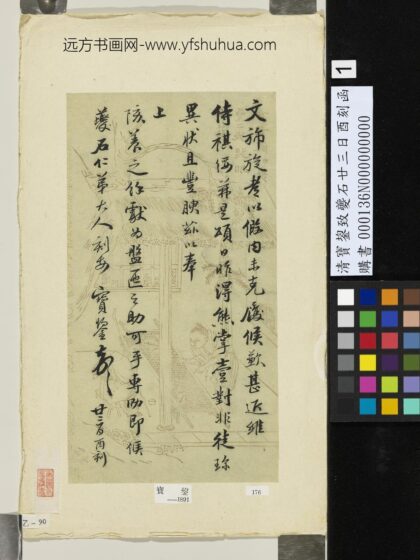 远方书画网-www.yfshuhua.com
文旆旋
以假內未克
候歉甚近維
侍祺
是頌日昨得熊掌壹對非徒珍
異狀且豐腴茲以奉
上
養之
獻為盤
之助可乎專
即候
石仁弟大人刻安 寶鋆
廿三日酉刻
1
清寶鋆致夔石廿三日酉刻函
購書 000136N000000000
寶 鋆
——1891
176
Z.-90